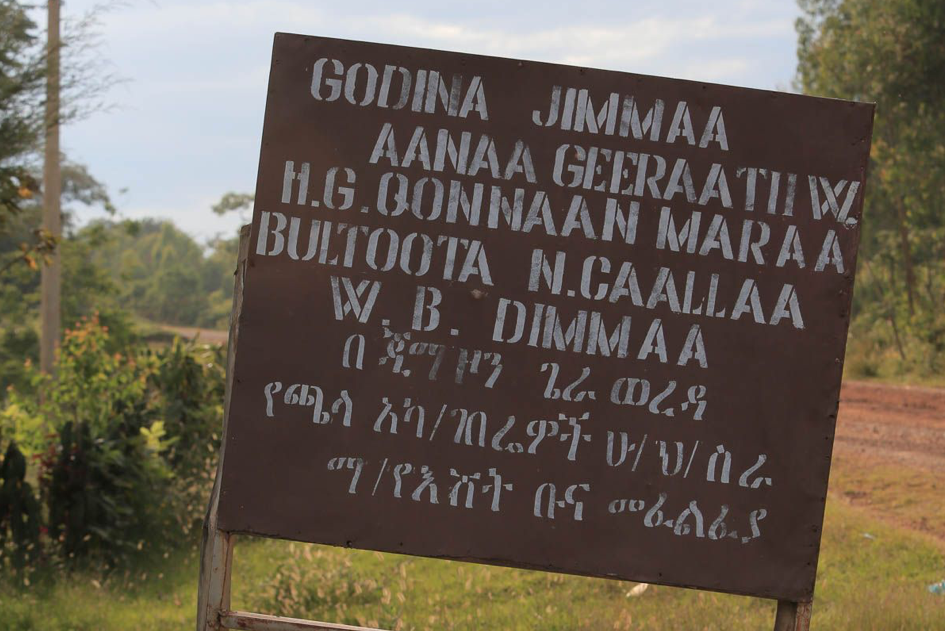 GODINA JIMMAA
AANAA GEERAATII W.
H.G.QONNAAN MARAA
BULTOOTA N.CAALLAA
W.B. DIMMAA
በ ጂማ ዞን ጌራ ወረዳ
የጫላ አካ/ገበሬዎች ሁ/ህ/ስራ
ማ/የእሸት ቡና መፈልፈያ